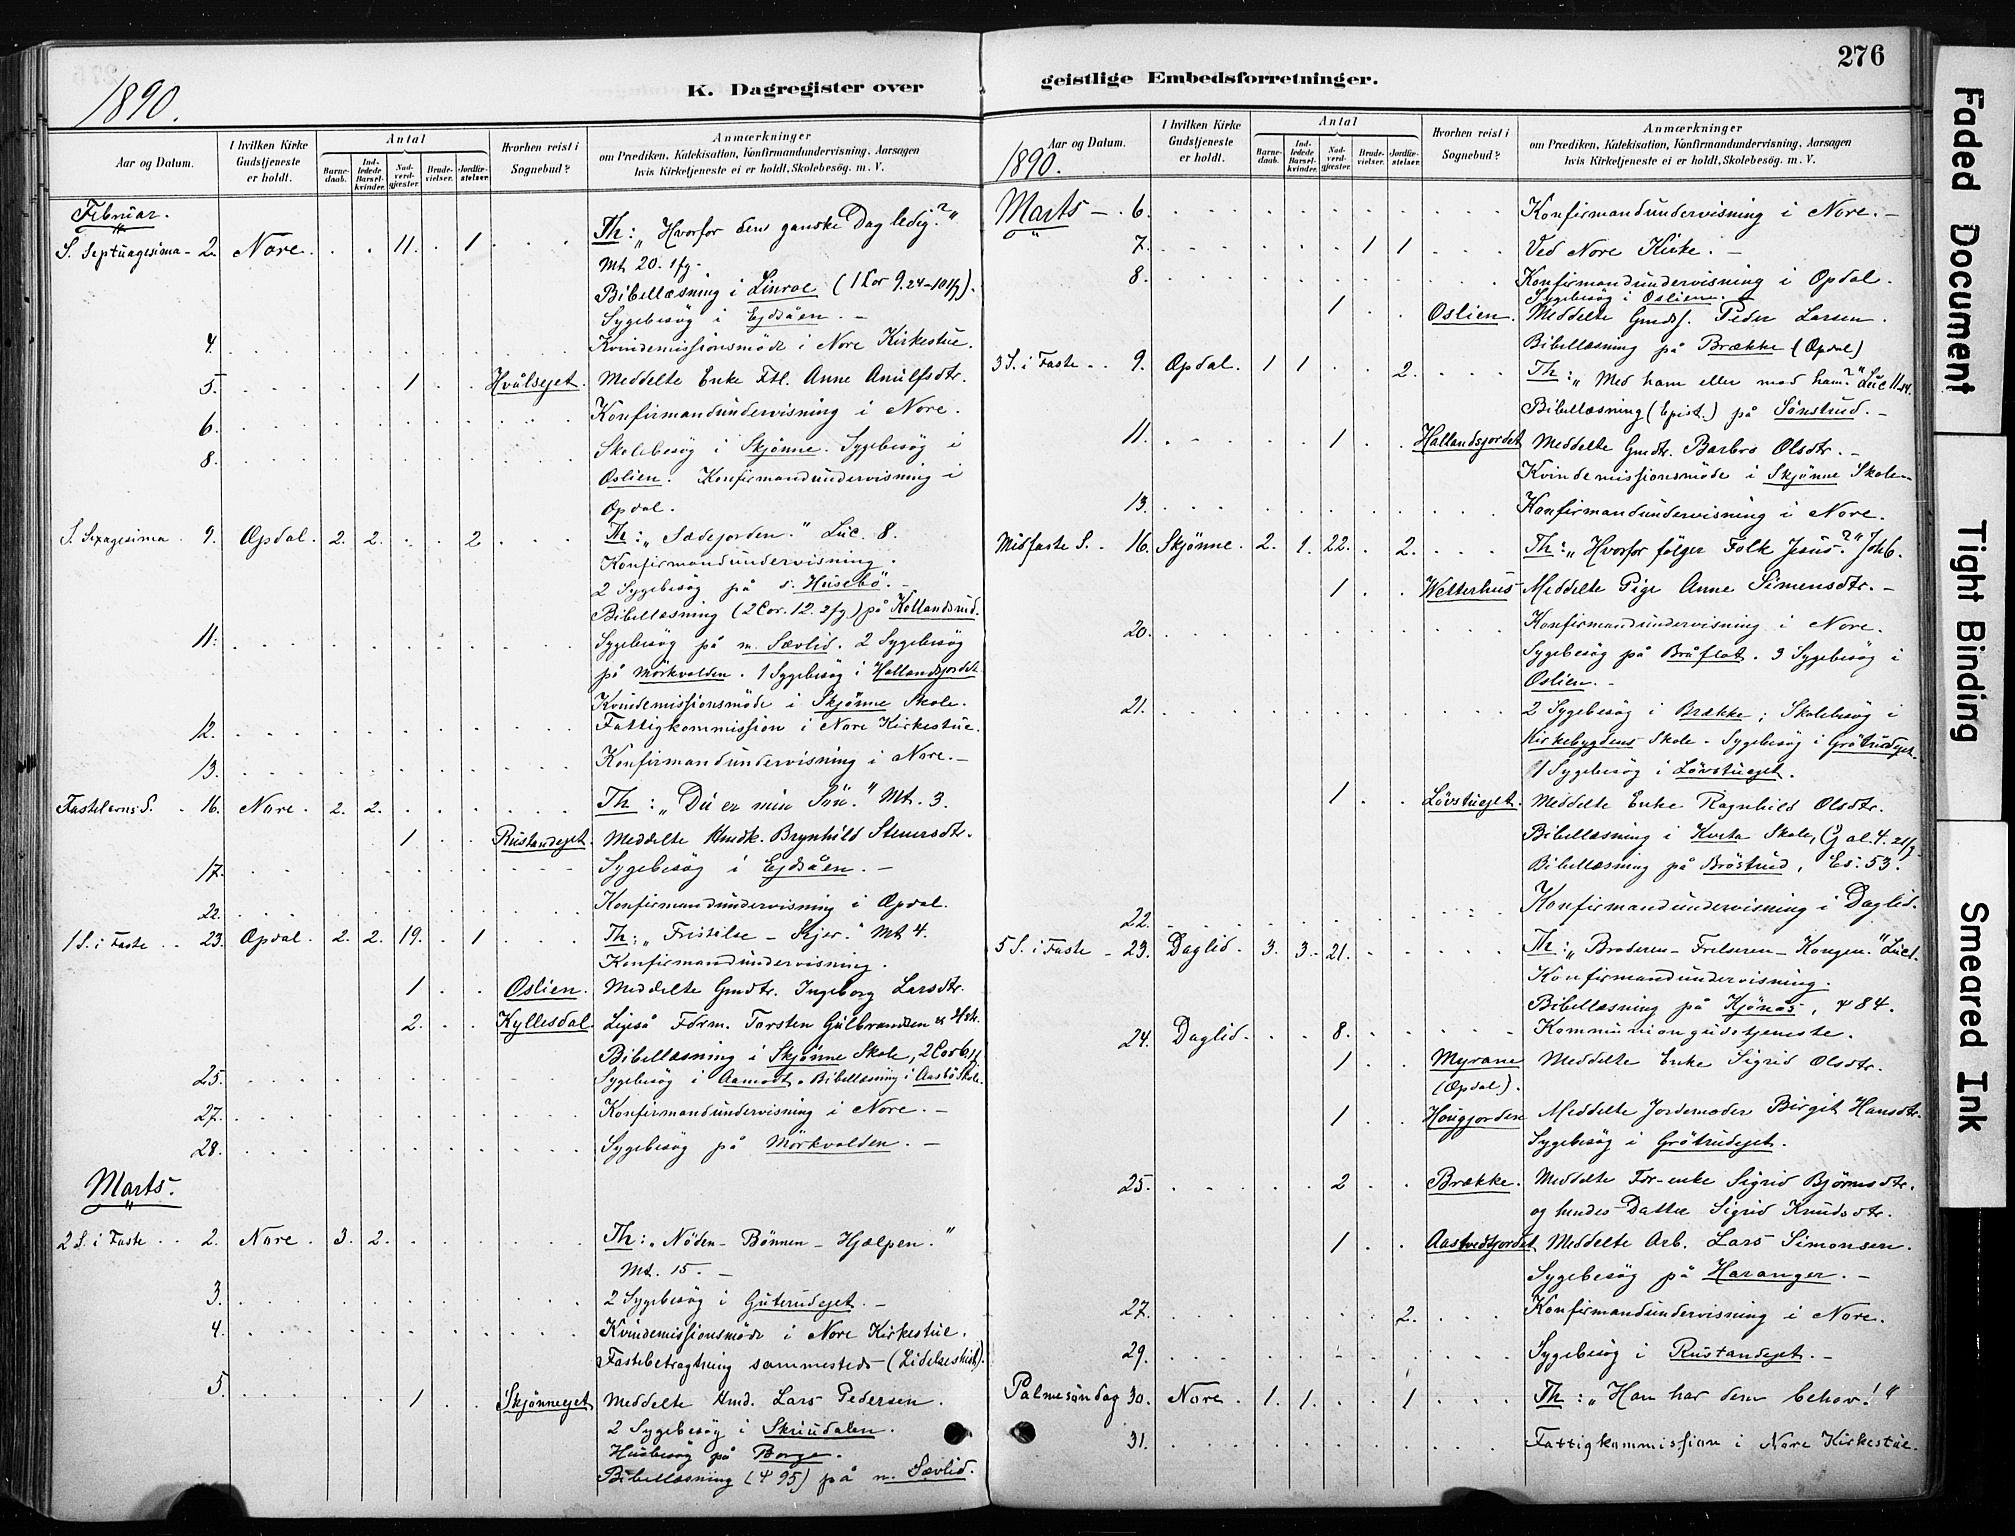 276
K. Dagregister over geistlige Embedsforretninger.
1890.
Aar og Datum. I hvilken Kirke Gudstjeneste er holdt. Antal Barnedaab. Indledede Barselkvinder. Nadverdgjæster. Brudevielser. Jordfæstelser. Hvorhen reist i Sognebud? Anmærkninger
om Prædiken, Katekisation, Konfirmandundervisning, Aarsagen
hvis Kirketjeneste ei er holdt, Skolebesøg. m. V.
Februar.
S. Septuagesima 2. Nore. 11. 1 Th: „Hvorfor den ganske Dag ledig?“
Mt 20. 1fg.
Bibellæsning i Linroe (1 Cor 9.24-10 1fg).
Sygebesøg i Ejdsåen.
4. Kvindemissionsmøde i Nore Kirkestue.
5. 1 Hvålsejet. Meddelte Enke Ftl. Anne Arnulfsdtr.
6. Konfirmandundervisning i Nore.
8. Skolebesøg i Skjønne. Sygebesøg i
Oslien. Konfirmandundervisning i
Opdal.
S. Sexagesima 9. Opdal. 2. 2. 2 Th: „Sædejorden“ Luc. 8.
Konfirmandundervisning.
2 Sygebesøg på s. Husebö.
Bibellæsning (2 Cor. 12. 2fg) på Kollandsrud.
11. Sygebesøg på n. Sævlid. 2 Sygebesøg
på Mörkvolden. 1 Sygebesøg i Hallandsjordet.
Kvindemissionsmöde i Skjønne Skole.
12. Fattigkommission i Nore Kirkestue.
13. Konfirmandundervisning i Nore.
Fastelavns S. 16. Nore. 2. 2. Th: „Du er min Sön.“ Mt. 3.
1 Rustandejet. Meddelte Hmdk. Brynhild Steinersdtr.
17. Sygebesøg i Ejdsåen.
22. Konfirmandundervisning i Opdal.
1 S. i Faste 23. Opdal. 2. 2. 19. 1 Th: „Fristelse – Sejer.“ Mt 4.
Konfirmandundervisning.
1 Oslien. Meddelte Gmdtr. Ingeborg Larsdtr.
2. Kyllesdal. Ligeså Førm. Torsten Gulbrandsen & Hstr.
Bibellæsning i Skjønne Skole, 2 Cor 6.1f
25. Sygebesøg i Aamodt. Bibellæsning i Aasbö Skole.
27. Konfirmandundervisning i Nore.
28. Sygebesøg på Mörkvolden.
Marts.
2 S. i Faste 2. Nore. 3. 2. Th: „Nöden – Bönnen – Hjælpen.“
Mt. 15.
3. 2 Sygebesøg i Guterudejet.
4. Kvindemissionsmøde i Nore Kirkestue.
Fastebetragtning sammesteds (Lidelseshist).
5. 1 Skjønneejet Meddelte Hmd. Lars Pedersen.
2 Sygebesøg i Skriudalen.
Husbesøg på Borge.
Bibellæsning (ψ 95) på n. Sævlid.
1890.
Aar og Datum. I hvilken Kirke Gudstjeneste er holdt. Antal Barnedaab. Indledede Barselkvinder. Nadverdgjæster. Brudevielser. Jordfæstelser. Hvorhen reist i Sognebud? Anmærkninger
om Prædiken, Katekisation, Konfirmandundervisning, Aarsagen
hvis Kirketjeneste ei er holdt, Skolebesøg. m. V.
Marts 6. Konfirmandundervisning i Nore.
7. 1 1 Ved Nore Kirke.
8. Konfirmandundervisning i Opdal.
Sygebesøg i Oslien.
1 Oslien. Meddelte Gmdsf. Peder Larsen.
Bibellæsning på Brække (Opdal)
3 S. i Faste 9. Opdal. 1 1 2. Th: „Med ham eller mod ham?“ Luc 11.14.
Bibellæsning (Epist.) på Sönstrud.
11. 1 Hallandsjordet Meddelte Gmdtr. Barbro Olsdtr.
Kvindemissionsmöde i Skjønne Skole
13. Konfirmandundervisning i Nore.
Midfaste S. 16. Skjønne. 2. 1. 22. 2. Th: „Hvorfor følger Folk Jesus?“ Joh 6.
1 Wetterhus Meddelte Pige Anne Simensdtr.
20. Konfirmandundervisning i Nore.
Sygebesøg på Bråflat. 3 Sygebesøg i
Oslien.
21. 2 Sygebesøg i Brække; Skolebesøg i
Kirkebygdens Skole. Sygebesøg i Grötrudejet.
1 Sygebesøg i Lövstuejet.
1 Lövstuejet. Meddelte Enke Ragnhild Olsdtr.
Bibellæsning i Kvern Skole, Gal. 4. 21fg.
Bibellæsning på Bröstrud, Es: 53.
22. Konfirmandundervisning i Daglid.
5 S. i Faste 23. Daglid. 3. 3. 21. Th: „Broderen – Frelseren – Kongen.“ Luc 1.
Konfirmandundervisning.
Bibellæsning på Kjönås, ψ 84.
24. Daglid. 8. Kommuniongudstjeneste.
1 Myrane Meddelte Enke Sigrid Olsdtr.
(Opdal).
1 Hougjorden Meddelte Jordemoder Birgit Hansdtr.
Sygebesøg i Grötrudejet.
25. 2 Brække. Meddelte For-enke Sigrid Björnsdtr.
og hendes Datter Sigrid Knudsdtr.
1 Aastvedtjordet Meddelte Arb. Lars Simonsen.
Sygebesøg på Haranger.
27. 2. Konfirmandundervisning i Nore.
29. Sygebesøg i Rustandejet.
Palmesöndag 30. Nore. 1. 1. 1 Th: „Han har dem behov!“
31. Fattigkommission i Nore Kirkestue.
Faded Document
Tight Binding
Smeared Ink